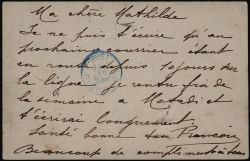 Ma chère Mathilde
Je ne puis t'écrire qu'au
prochain courrier étant
en route depuis 10 jours sur
la ligne je rentre fin de
la semaine a Matadi et
t'écrirai longuement
Santé bonne ton
Beaucoup de compliments à tous